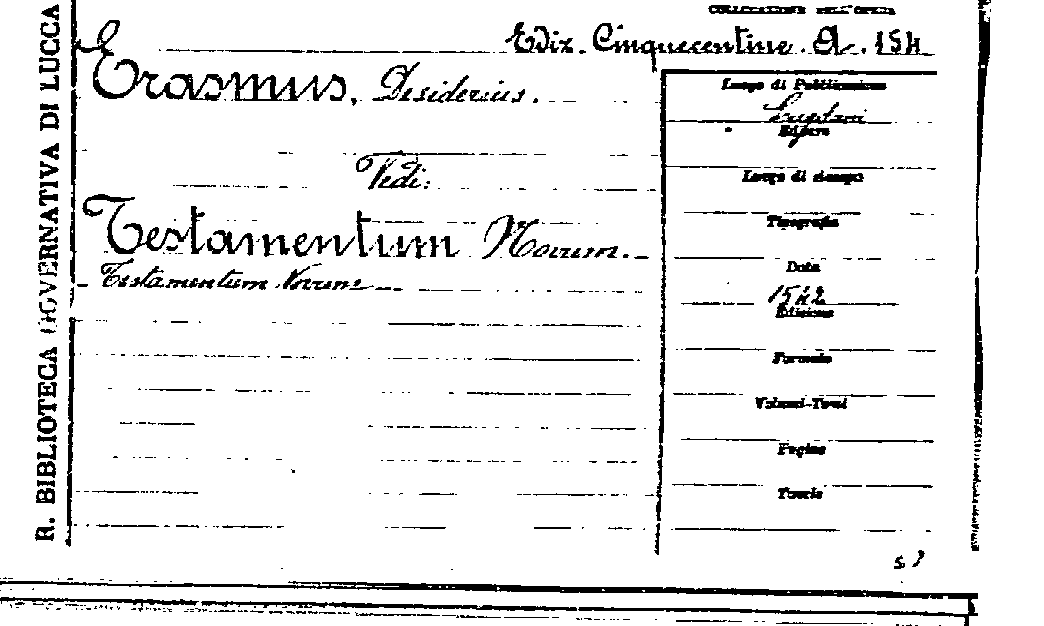 COLLOCAZIONE DELL'OPERA
Ediz. Cinquecentine. A. 154
Erasmus, Desiderius.
Vedi:
Testamentum Novum.
Testamentum Novum
R. BIBLIOTECA GOVERNATIVA DI LUCCA
Luogo di Pubblicazione
Lugduni
Editore
Luogo di stampa
Tipografia
Data
1542
Edizione
Formato
Volumi-Tomi
Pagine
Tavole